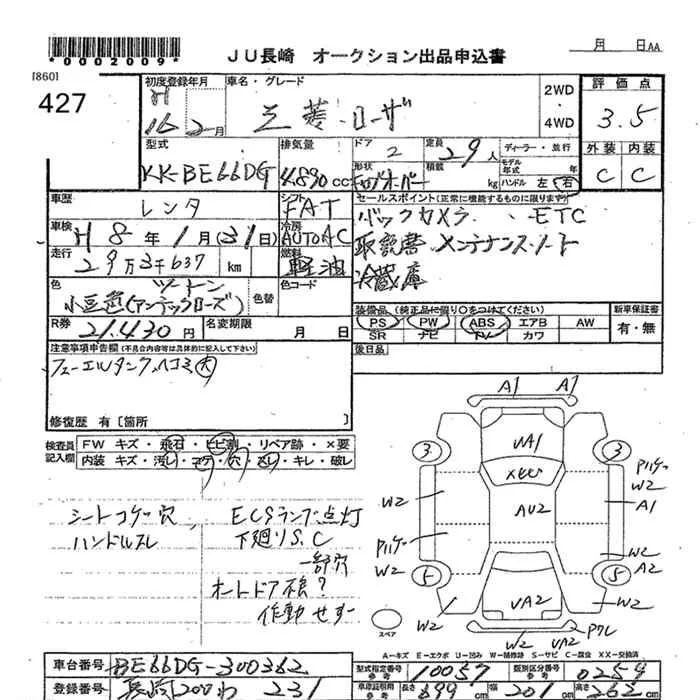 *0002009*
JU長崎 オークション出品申込書
月 日AA
[860]
427
初度登録年月 車名・グレード
H 16 2月
三菱・ローザ
2WD
4WD
評価点
3.5
外装 内装
C C
型式
KK-BE66DG
排気量
4,890 cc
ドア 2
形状
定員 29人
積載 kg
ディーラー・並行
モデル年式 年
ハンドル 左 右
車歴
レンタ
シフト
FAT
セールスポイント(正常に機能するものに限ります)
バックカメラ、ETC
取説書 メンテナンスノート
冷蔵庫
車検
H 8年1月(31日)
冷房
AUTO AC
走行
29万3千637 km
燃料
軽油
色
ツートン
小豆色(アンテックローズ)
色替
色コード
R券
21,430円
名変期限 月 日
装備品(純正品に限り○をつけてください)
PS PW ABS エアB AW
SR ナビ TV カワ
新車保証書
有・無
後日品
注意事項申告欄(不具合内容等は具体的に記入して下さい)
フューエルタンクヘコミ大
修復歴 有[箇所 ]
検査員記入欄
FW キズ・飛石・ヒビ割・リペア跡・×要
内装 キズ・汚レ・コゲ・穴・スレ・キレ・破レ
シートコゲ穴
ハンドルスレ
ECSランプ点灯
下廻りS.C
一部穴
オートドア
作動せず
A1 A1
UA1
3 3
W2
AU2
W2
A1
W2
W2
A2
5 5
UA2
W2
W2
W2
UA2
スペア
A-キズ E-エクボ U-凹み W-補修跡 S-サビ C-腐食 XX-交換済
車台番号
BE66DG-300362
登録番号
長崎200わ231
型式指定番号 参考
10057
類別区分番号 参考
0254
車庫証明用 参考
長さ 699 cm
幅 201 cm
高さ 262 cm